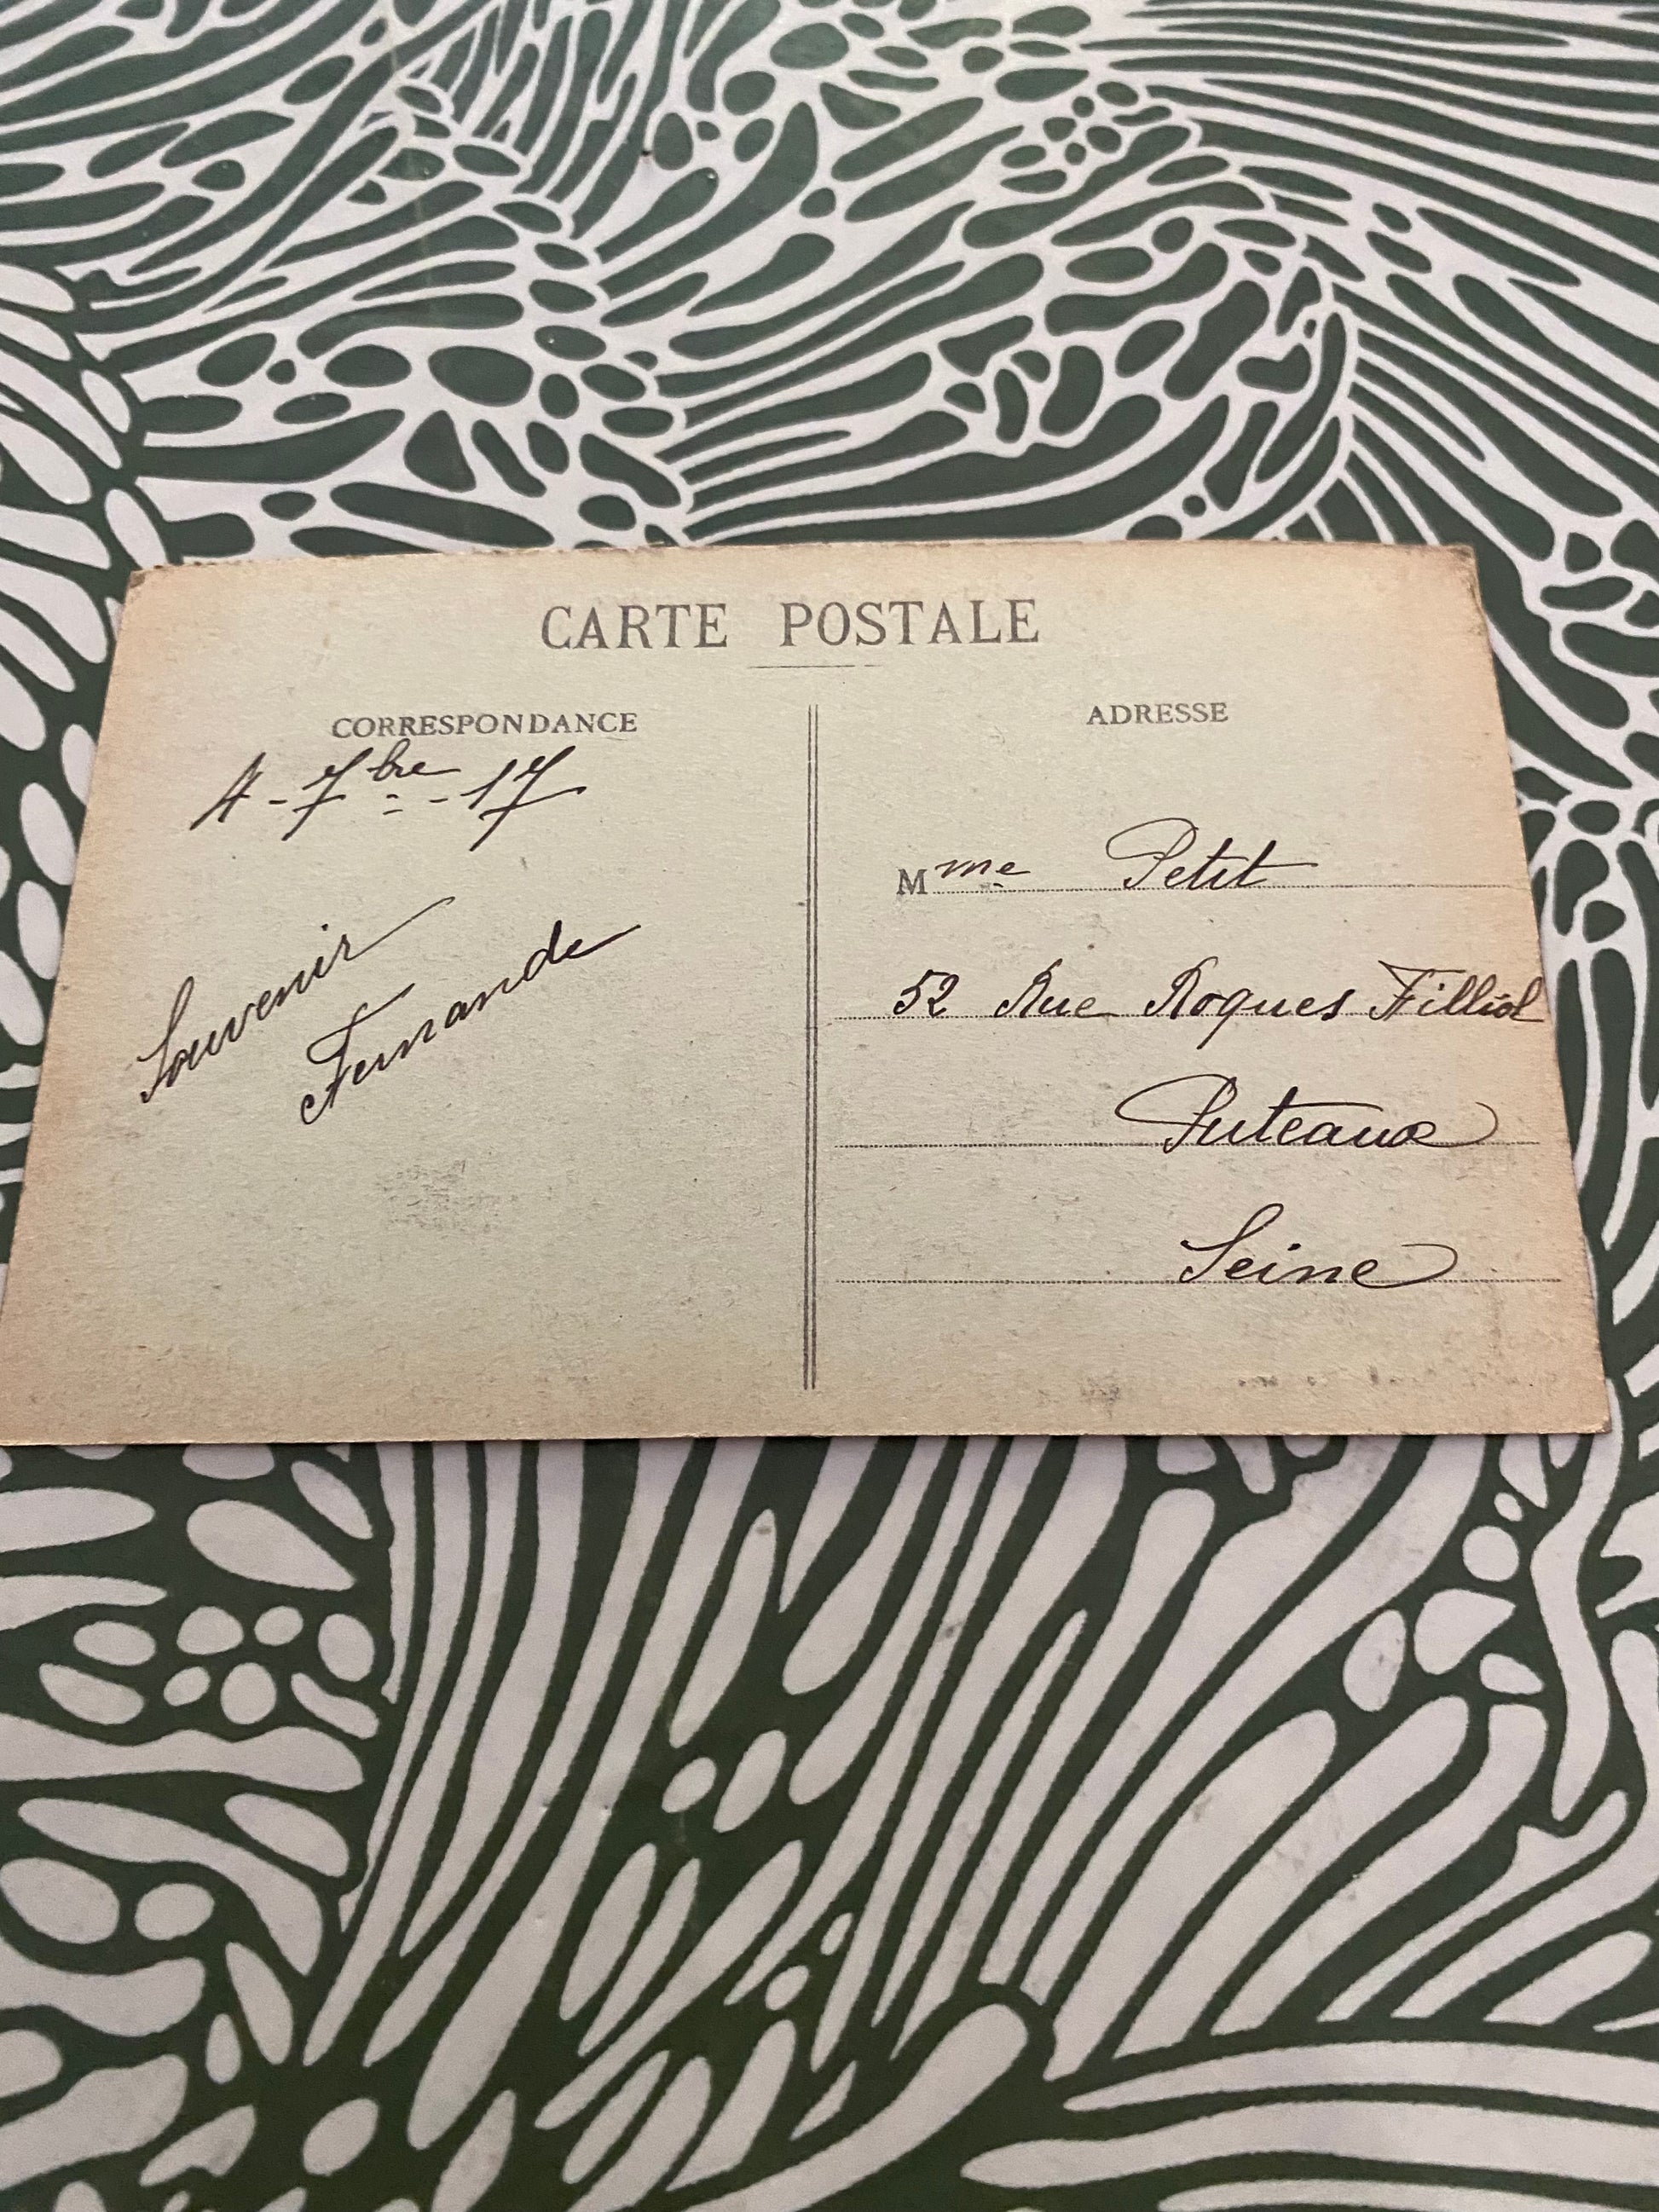 CARTE POSTALE
CORRESPONDANCE
4 - 7bre - 17
Souvenir
Fernande
ADRESSE
Mme Petit
52 Rue Roques Filliol
Puteaux
Seine